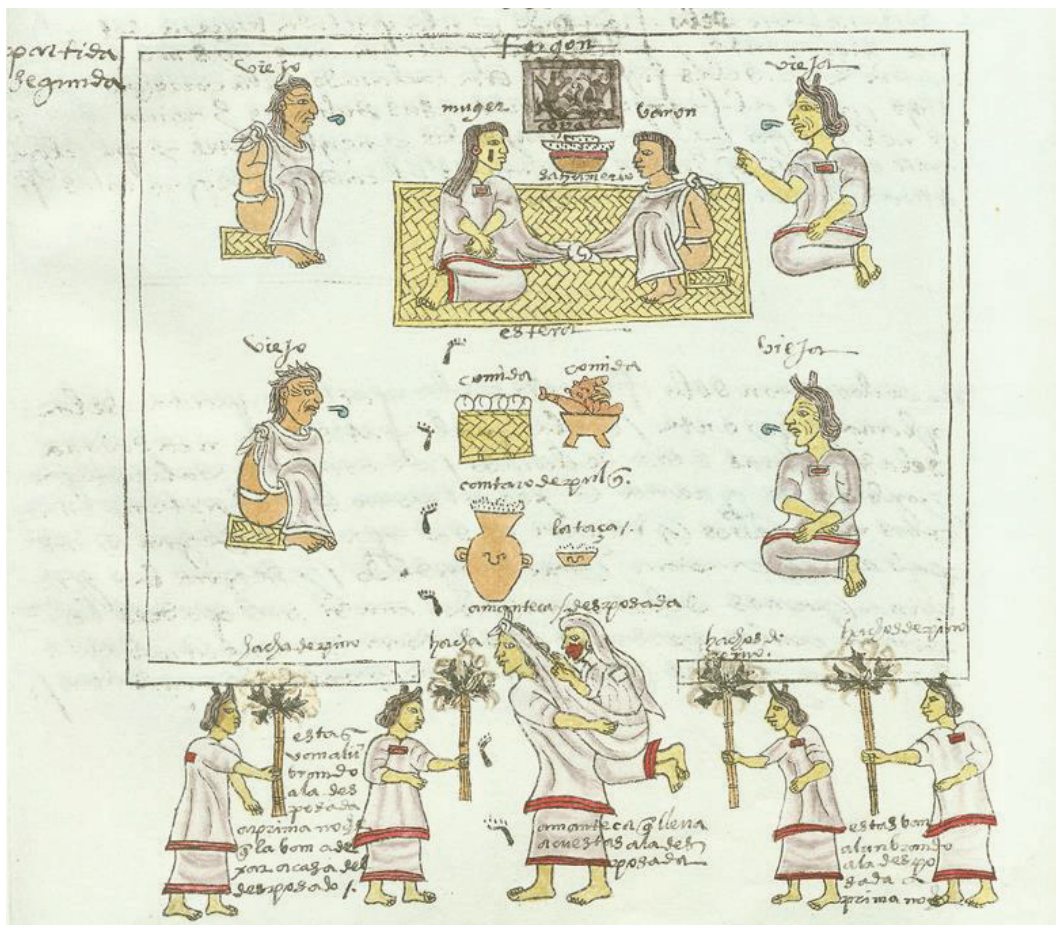 partida
segunda
fogon
viejo
vieja
muger
varon
copali
sahumerio
estera
viejo
vieja
comida
comida
cantaro de pulq̃.
la taça /.
amanteca / desposada
hacha de pino
hacha
hachos de
pino.
hachos de pino
estas
van alũ
brando
a la des
posada
a prima noche
q̃ la van a de
xar a casa del
desposado /.
amanteca q̃ lleva
a cuestas a la des
posada
estas van
alunbrando
a la despo
sada a
prima noche